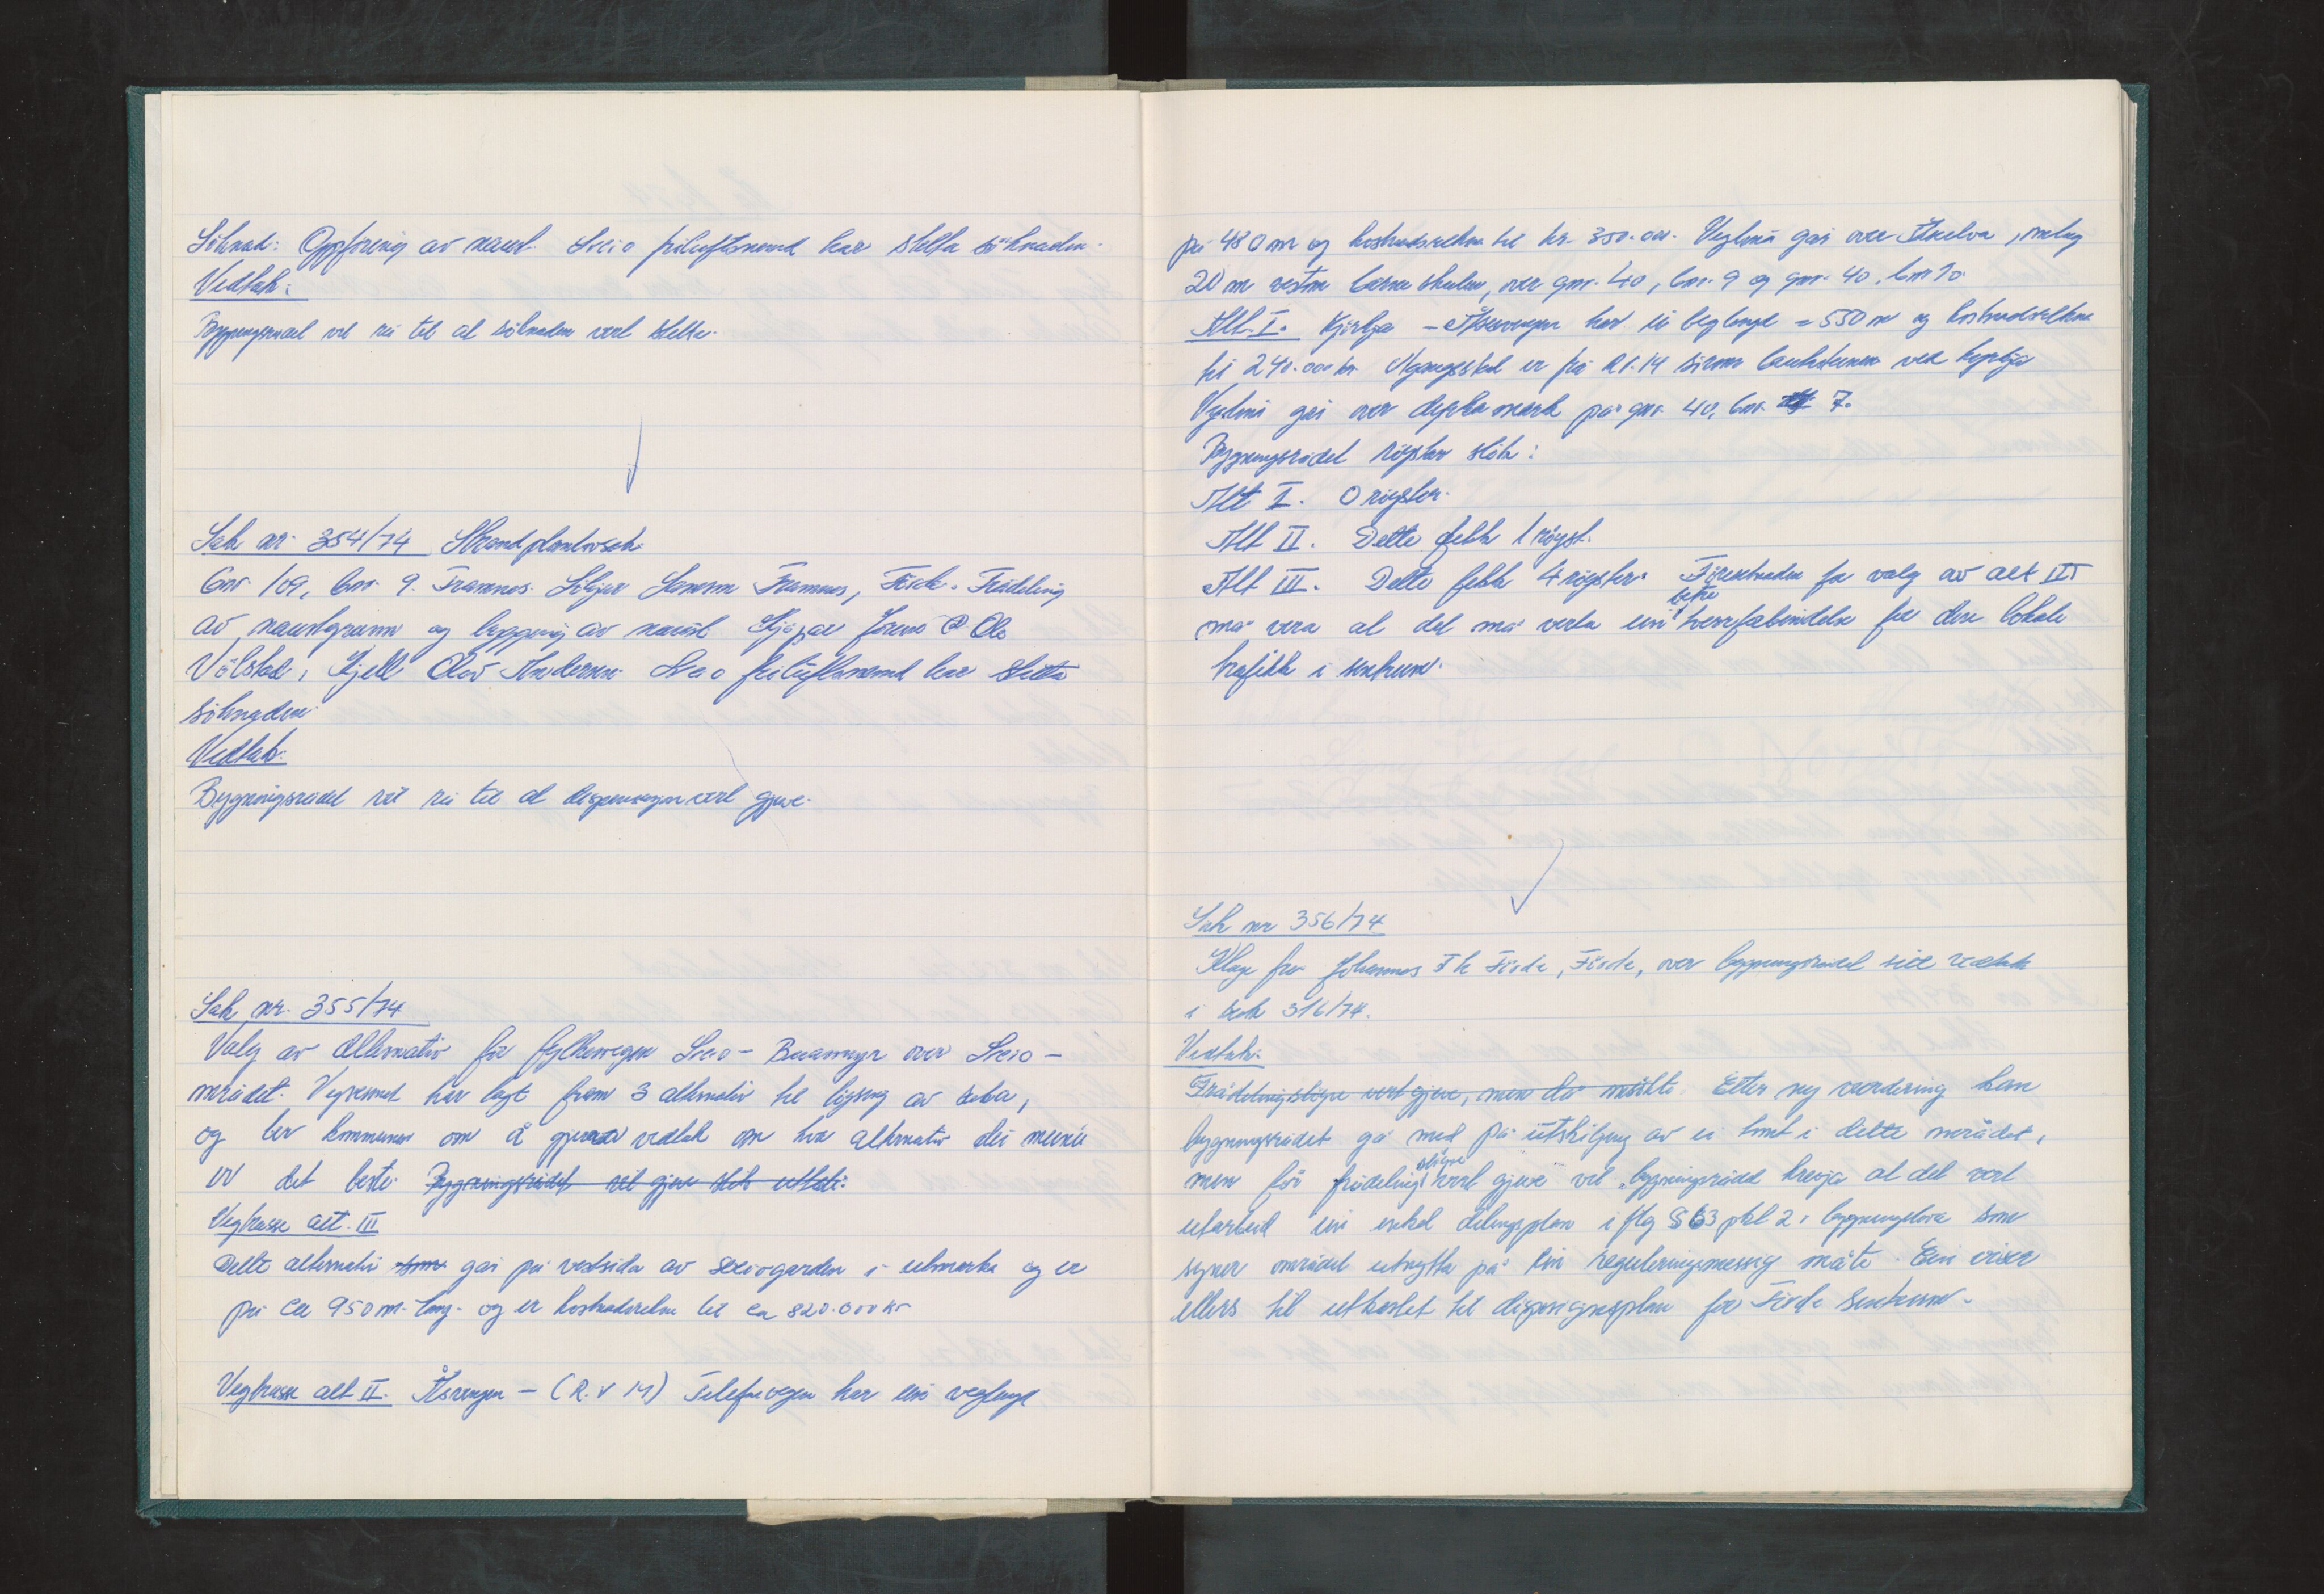 Söknad: Oppföring av naust. Sveio friluftsnemnd har stetta söknaden.
Vedtak:
Bygningsrådet vil rå til at söknaden vert stetta.
Sak nr. 354/74 Strandplanlovsak.
Gnr. 109, bnr. 9. Framnes. Sökjar Framnes, Förde. Frådeling
av naustgrunn og bygging av naust. Kjöpar Ole
Völstad, Kjell Olav Andersen. Sveio friluftsnemnd har stetta
söknaden.
Vedtak:
Bygningsrådet vil rå til at dispensasjon vert gjeve.
Sak nr. 355/74
Valg av alternativ för fylkesvegen Sveio - Buamyr over Sveio -
området. Vegvesenet har lagt fram 3 alternativ til löysing av saka,
og ber kommunen om å gjera vedtak om kva alternativ dei meinar
er det beste. Bygningsrådet vil gjeve slik uttale:
Vegtrasse alt. III
Dette alternativ som går på vestsida av Sveiogarden i utmarka og er
på ca 950 m. lang. og er kostnadsrekna til ca 820.000 kr
Vegtrasse alt II. Åsvegen - (R.V 14) Telefonvegen har ein veglengd
på 480 m og kostnadsrekna til kr. 350.000. Veglina går over
20 m vestom barneskulen, over gnr. 40, bnr. 9 og gnr. 40, bnr 10
Alt. I. Kyrkja - Åsvegen har ei veglengd = 550 m og kostnadsrekna
til 240.000 kr. Utgangsstad er frå RV.14 ved kyrkja
Veglina går over dyrka mark på gnr. 40, bnr. 7.
Bygningsrådet röystar slik:
Alt I. 0 röyster.
Alt II. Dette fekk 1 röyst.
Alt III. Dette fekk 4 röyster. Föresetnaden for valg av alt III
må vera at det må verta ein betre tverrforbindelse for den lokale
trafikk i sentrum.
Sak nr 356/74
Klage fra Johannes Th Förde, Förde, over bygningsrådet sitt vedtak
i sak 316/74.
Vedtak:
Frådelingslöyve vert gjeve, men då måtte Etter ny vurdering kan
bygningsrådet gå med på utskiljing av ei tomt i dette området,
men för frådelingslöyve vert gjeve vil bygningsrådet krevja at det vert
utarbeid ein enkel delingsplan iflg § 63 pkt 2 i bygningslova som
syner området utnytta på ein reguleringsmessig måte. Ein viser
ellers til utkastet til disposisjonsplan for Förde sentrum.